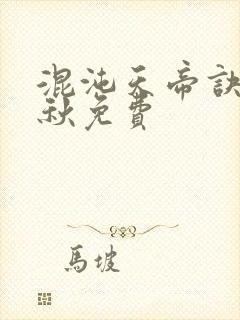 混沌天帝訣
秋免費
馬坡